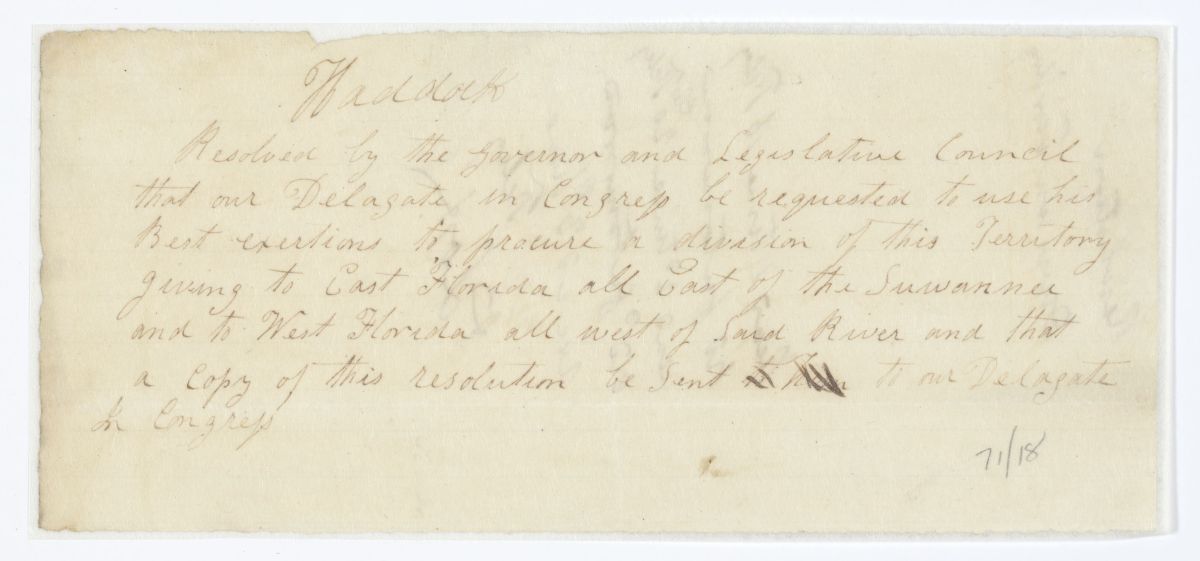 Haddock
Resolved by the Governor and Legislative Council
that our Delagate in Congress be requested to use his
Best exertions to procure a division of this Territory
giving to East Florida all East of the Suwannee
and to West Florida all west of Said River and that
a Copy of this resolution be Sent to our Delagate
In Congress
71/18